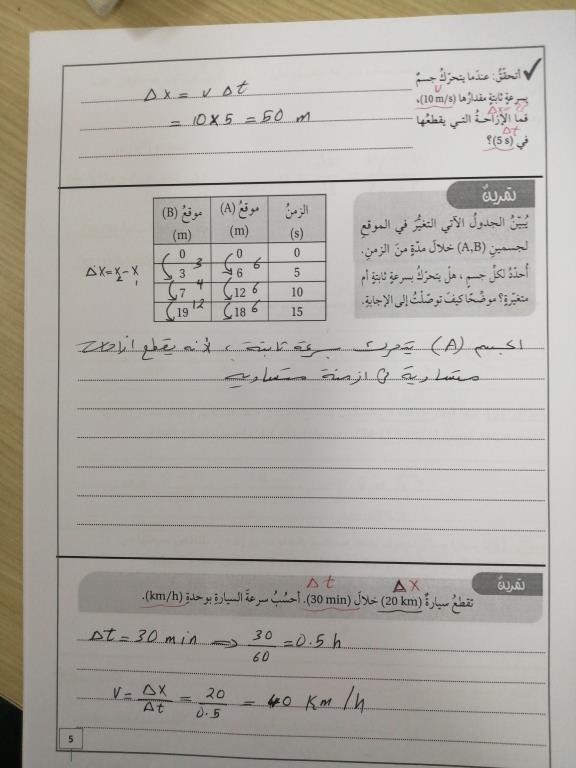 أتحقّقُ: عندَما يتحرّكُ جسمٌ
بسرعةٍ ثابتةٍ مقدارُها (10 m/s)،
v
Δx = ??
فما الإزاحةُ التي يقطعُها
Δt
في (5 s)؟
Δx = v Δt
= 10x5 = 50 m
تمرينٌ
يُبيّنُ الجدولُ الآتي التغيُّرَ في الموقعِ
لجسمينِ (A,B) خلالَ مدّةٍ منَ الزمنِ.
أُحدّدُ لكلِّ جسمٍ، هلْ يتحرّكُ بسرعةٍ ثابتةٍ أم
متغيّرةٍ؟ موضّحًا كيفَ توصّلْتُ إلى الإجابةِ.
الزمنُ (s) موقعُ (A) (m) موقعُ (B) (m)
0 0 0
5 6 6 3 3
10 12 6 7 4
15 18 6 19 12
Δx = x₂ - x₁
الجسم (A) يتحرك بسرعة ثابتة، لأنه يقطع ازاحات
متساوية في ازمنة متساويه
تمرينٌ
Δt Δx
تقطعُ سيارةٌ (20 km) خلالَ (30 min). أحسُبُ سرعةَ السيارةِ بوحدةِ (km/h).
Δt = 30 min ⇒ 30/60 = 0.5 h
v = Δx/Δt = 20/0.5 = 40 Km/h
5